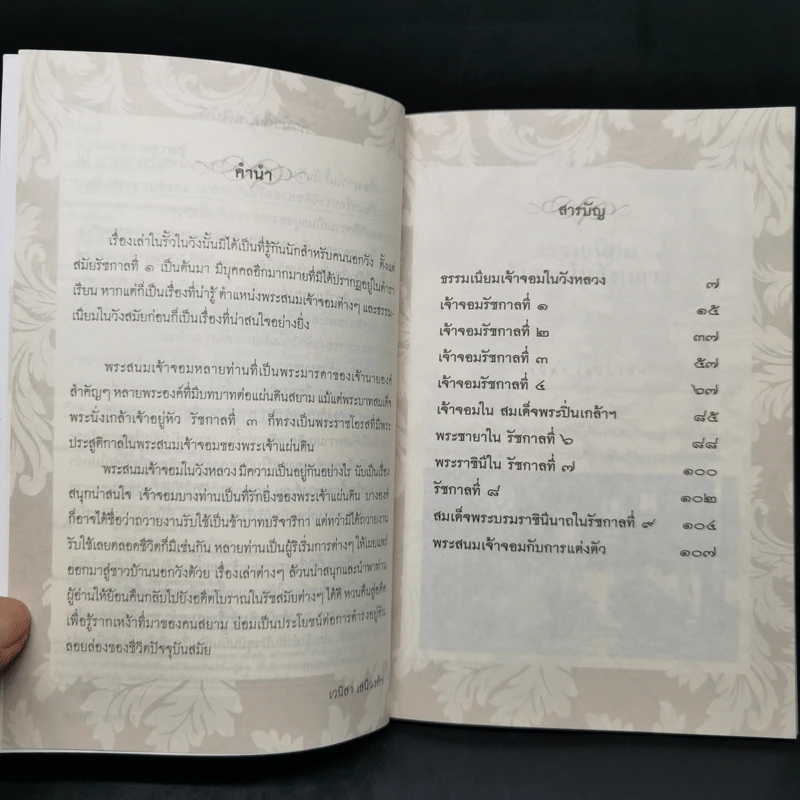 คำนำ
เรื่องเล่าในรั้วในวังนั้นมิได้เป็นที่รู้กันนักสำหรับคนนอกวัง ตั้งแต่
สมัยรัชกาลที่ ๑ เป็นต้นมา มีบุคคลอีกมากมายที่มิได้ปรากฏอยู่ในตำรา
เรียน หากแต่ก็เป็นเรื่องที่น่ารู้ ตำแหน่งพระสนมเจ้าจอมต่างๆ และธรรม-
เนียมในวังสมัยก่อนก็เป็นเรื่องที่น่าสนใจอย่างยิ่ง
พระสนมเจ้าจอมหลายท่านที่เป็นพระมารดาของเจ้านายองค์
สำคัญๆ หลายพระองค์ที่มีบทบาทต่อแผ่นดินสยาม แม้แต่พระบาทสมเด็จ
พระนั่งเกล้าเจ้าอยู่หัว รัชกาลที่ ๓ ก็ทรงเป็นพระราชโอรสที่มีพระ
ประสูติกาลในพระสนมเจ้าจอมของพระเจ้าแผ่นดิน
พระสนมเจ้าจอมในวังหลวง มีความเป็นอยู่กันอย่างไร นับเป็นเรื่อง
สนุกน่าสนใจ เจ้าจอมบางท่านเป็นที่รักยิ่งของพระเจ้าแผ่นดิน บางองค์
ก็อาจได้ชื่อว่าถวายงานรับใช้เป็นข้าบาทบริจาริกา แต่ทว่ามิได้ถวายงาน
รับใช้เลยตลอดชีวิตก็มีเช่นกัน หลายท่านเป็นผู้ริเริ่มการต่างๆ ให้เผยแพร่
ออกมาสู่ชาวบ้านนอกวังด้วย เรื่องเล่าต่างๆ ล้วนน่าสนุกและนำพาท่าน
ผู้อ่านให้ย้อนคืนกลับไปยังอดีตโบราณในรัชสมัยต่างๆ ได้ดี หวนคืนสู่อดีต
เพื่อรู้รากเหง้าที่มาของคนสยาม ย่อมเป็นประโยชน์ต่อการดำรงอยู่อัน
ลอยล่องของชีวิตปัจจุบันสมัย
เวนิสา เสนีวงศ์ฯ
สารบัญ
ธรรมเนียมเจ้าจอมในวังหลวง ๗
เจ้าจอมรัชกาลที่ ๑ ๑๕
เจ้าจอมรัชกาลที่ ๒ ๓๗
เจ้าจอมรัชกาลที่ ๓ ๕๗
เจ้าจอมรัชกาลที่ ๔ ๖๗
เจ้าจอมใน สมเด็จพระปิ่นเกล้าฯ ๘๕
พระชายาใน รัชกาลที่ ๖ ๘๘
พระราชินีใน รัชกาลที่ ๗ ๑๐๐
รัชกาลที่ ๘ ๑๐๒
สมเด็จพระบรมราชินีนาถในรัชกาลที่ ๙ ๑๐๔
พระสนมเจ้าจอมกับการแต่งตัว ๑๐๗